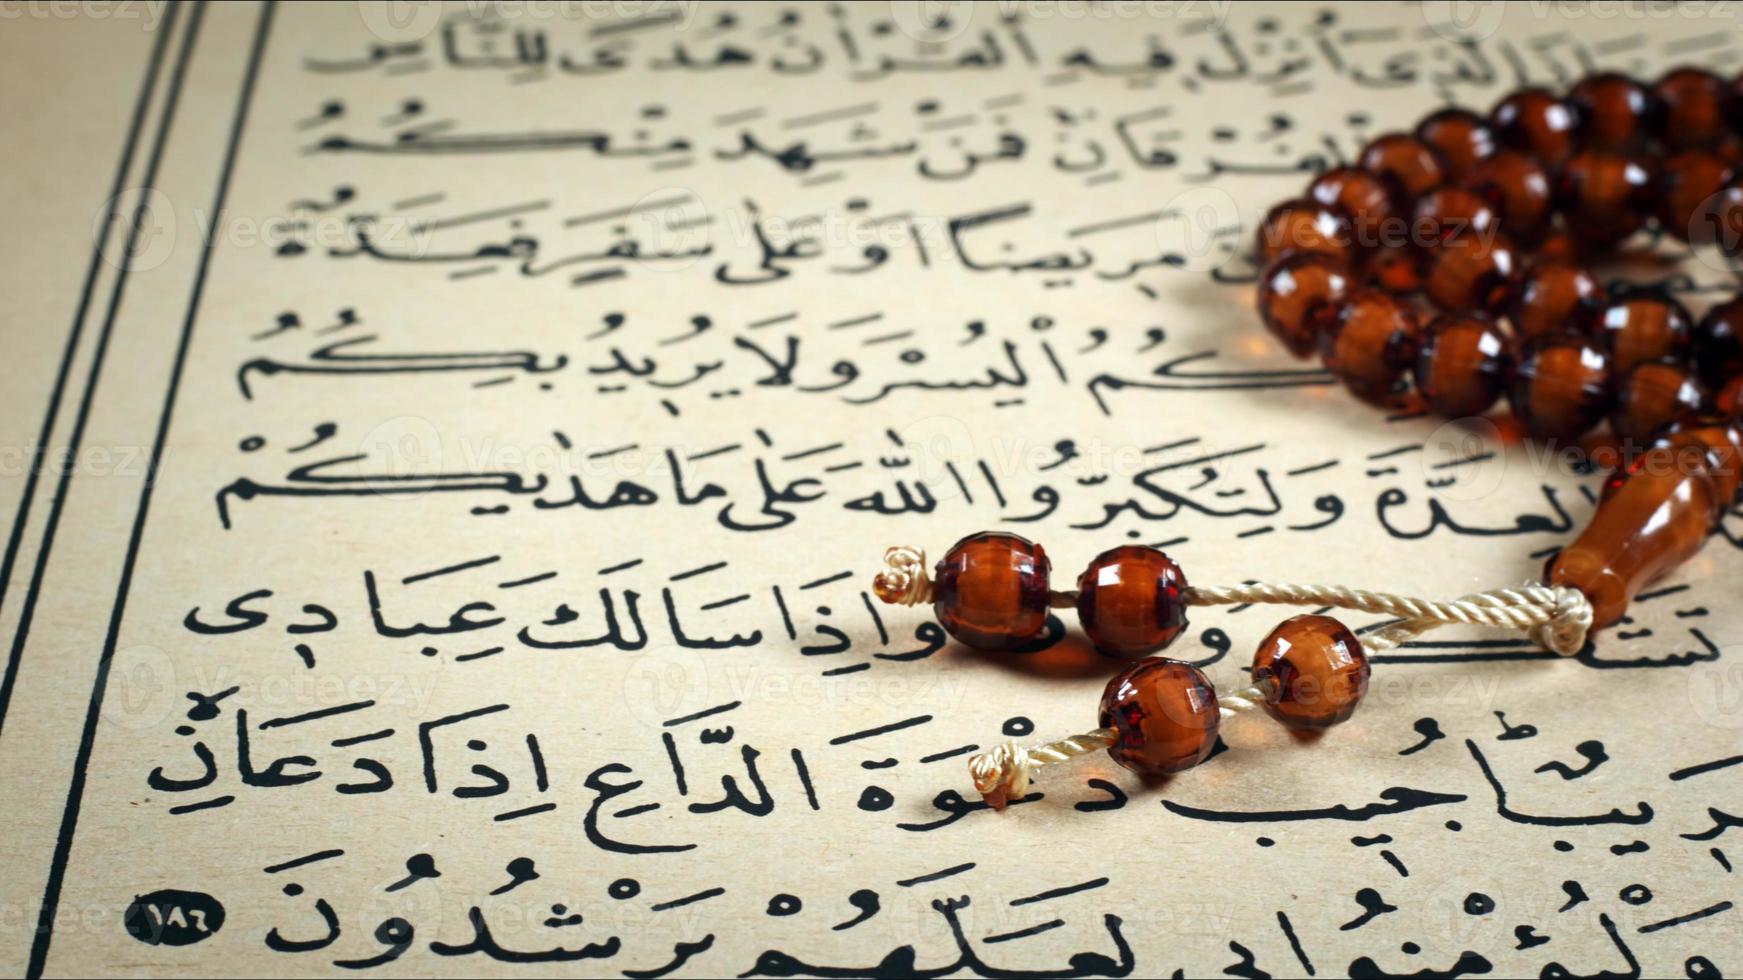 الَّذِى أُنْزِلَ فِيهِ الْقُرْاٰنُ هُدًى لِلنَّاسِ
الْفُرْقَانِ فَمَنْ شَهِدَ مِنْكُمُ
مَرِيضًا اَوْ عَلٰى سَفَرٍ فَعِدَّةٌ
بِكُمُ الْيُسْرَ وَلَا يُرِيدُ بِكُمُ
الْعِدَّةَ وَلِتُكَبِّرُوا اللّٰهَ عَلٰى مَا هَدٰيكُمْ
وَاِذَا سَاَلَكَ عِبَادِى
قَرِيبٌ اُجِيبُ دَعْوَةَ الدَّاعِ اِذَا دَعَانِ
وَلْيُؤْمِنُوا بِى لَعَلَّهُمْ يَرْشُدُونَ ١٨٦